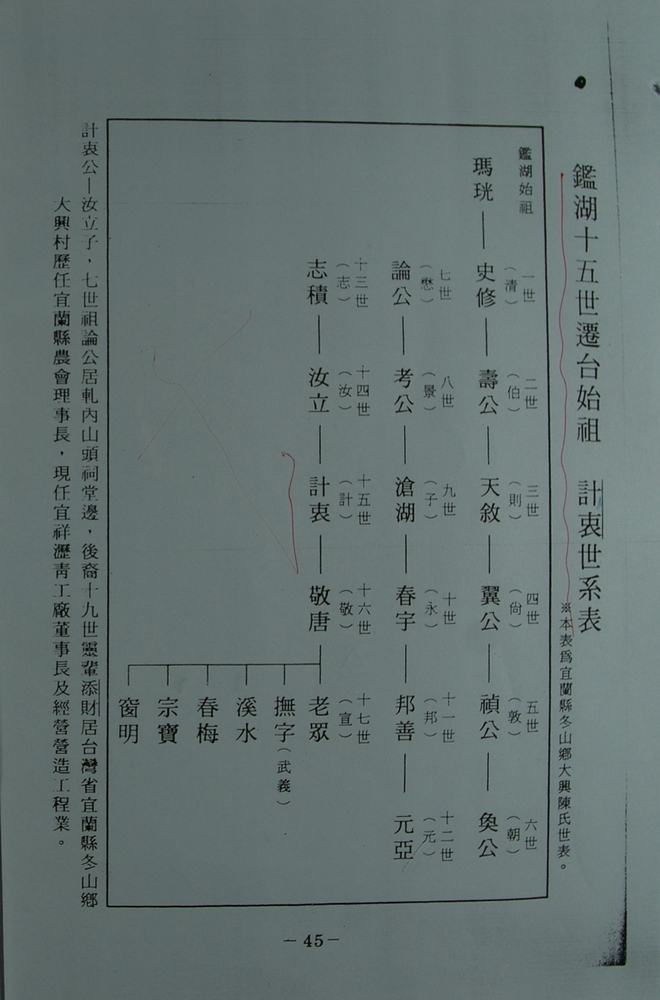 鑑湖十五世遷台始祖　計衷世系表
※本表為宜蘭縣冬山鄉大興陳氏世表。
鑑湖始祖
一世　二世　三世　四世　五世　六世
（清）（伯）（則）（尙）（敦）（朝）
瑪珖—史修—壽公—天敘—翼公—禎公—奐公
七世　八世　九世　十世　十一世　十二世
（懋）（景）（子）（永）（邦）（元）
論公—考公—滄湖—春宇—邦善—元亞
十三世　十四世　十五世　十六世　十七世
（志）（汝）（計）（敬）（宣）
志積—汝立—計衷—敬唐—老眾
撫字（武義）
溪水
春梅
宗寶
窗明
計衷公—汝立子，七世祖論公居軋內山頭祠堂邊，後裔十九世靈輩添財居台灣省宜蘭縣冬山鄉
大興村歷任宜蘭縣農會理事長，現任宜祥瀝靑工廠董事長及經營營造工程業。
—45—